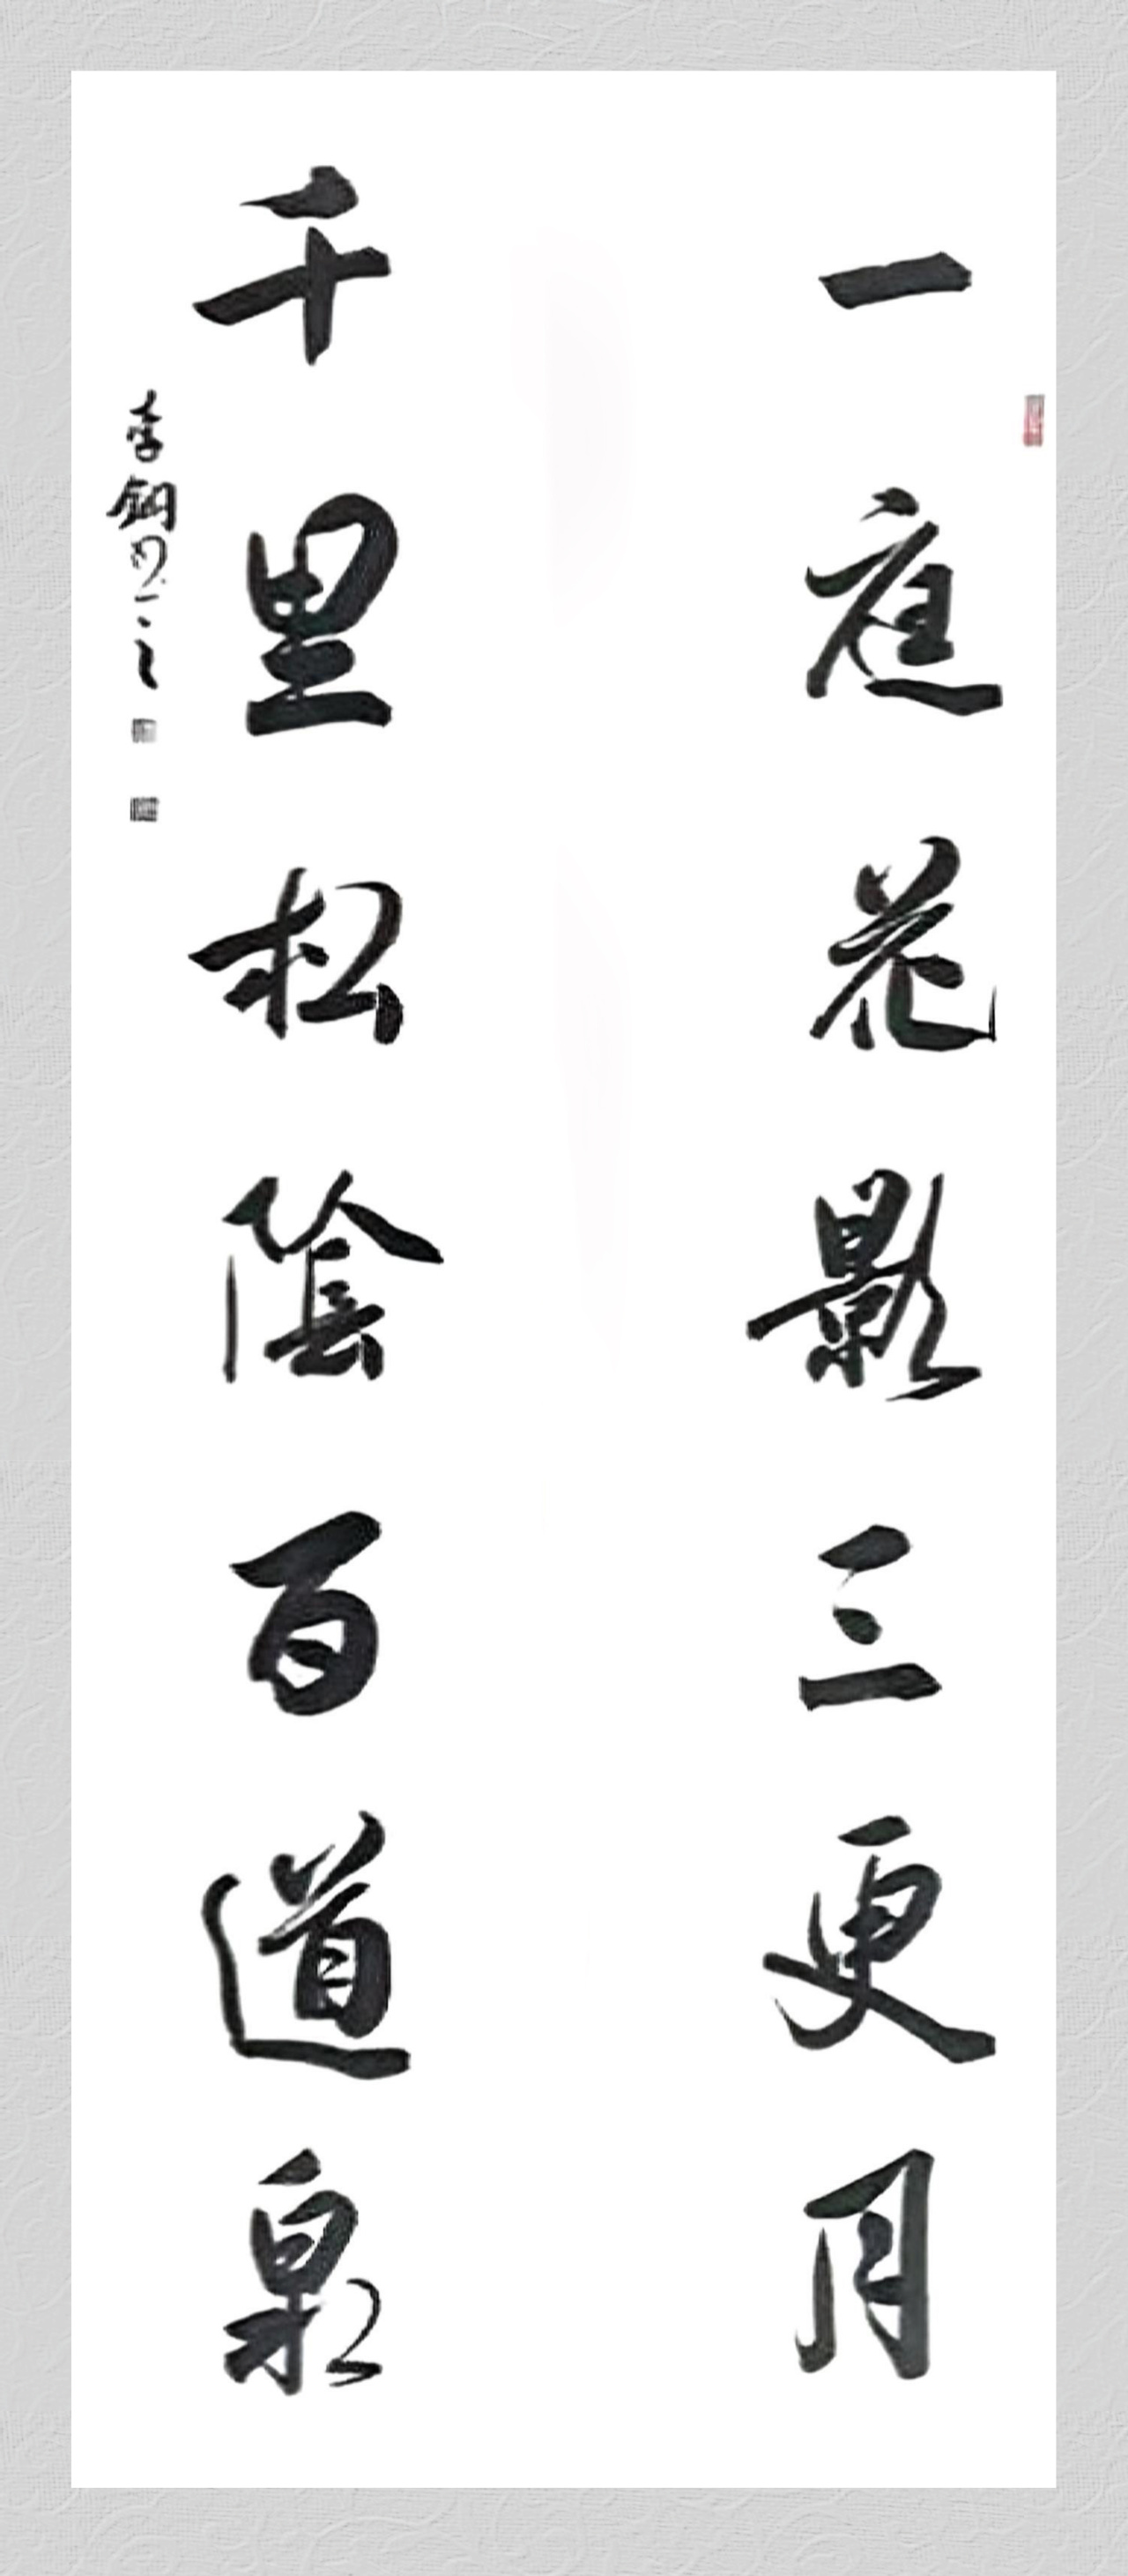 一庭花影三更月
千里松陰百道泉